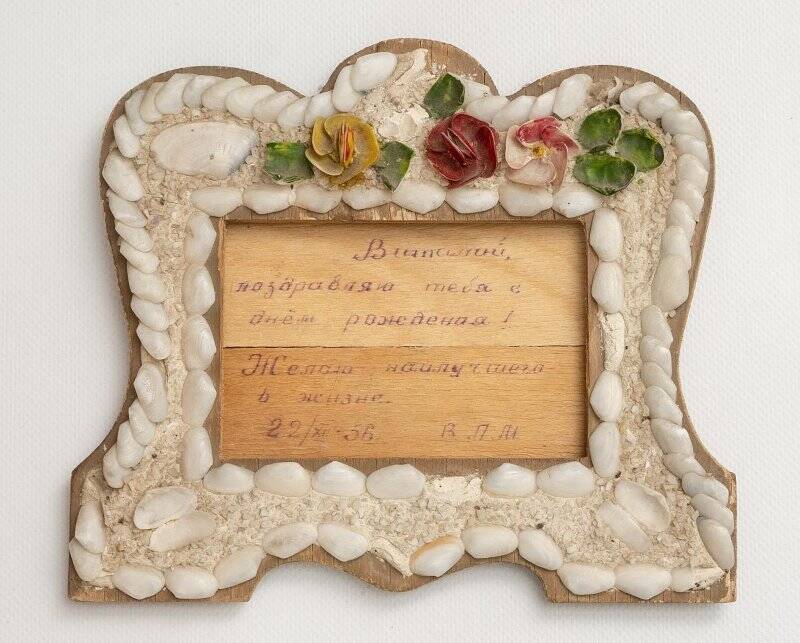 Виталий,
поздравляю тебя с
днём рождения!
Желаю наилучшего
в жизне.
22/XI-56 В.П.М